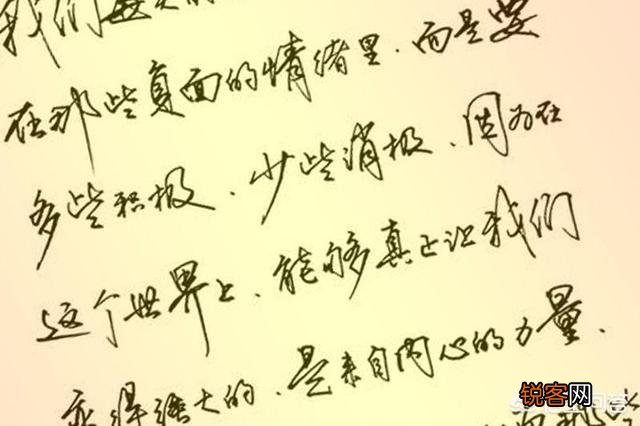 我们每天的
在那些负面的情绪里.而是要
多些积极、少些消极、因为在
这个世界上、能够真正让我们
变得强大的、是来自内心的力量、
而那些
锐客网